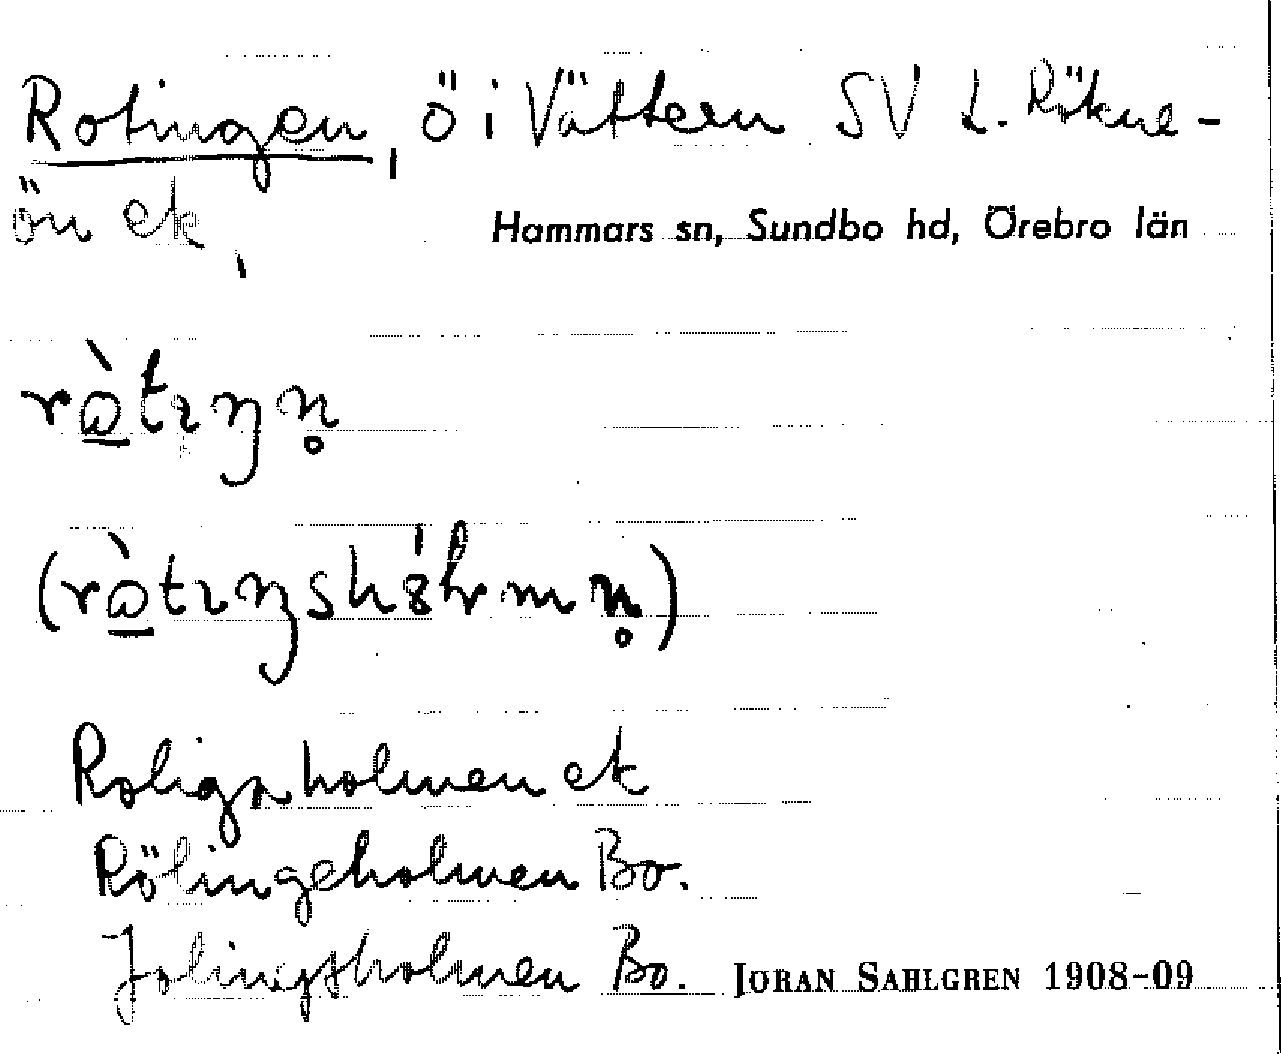 Rotingen, ö i Vättern SV L. Rökne-
ön ek,
Hammars sn, Sundbo hd, Örebro län
Roligaholmen ek
Rölingeholmen Bo.
Jolingsholmen Bo.
JÖRAN SAHLGREN 1908-09